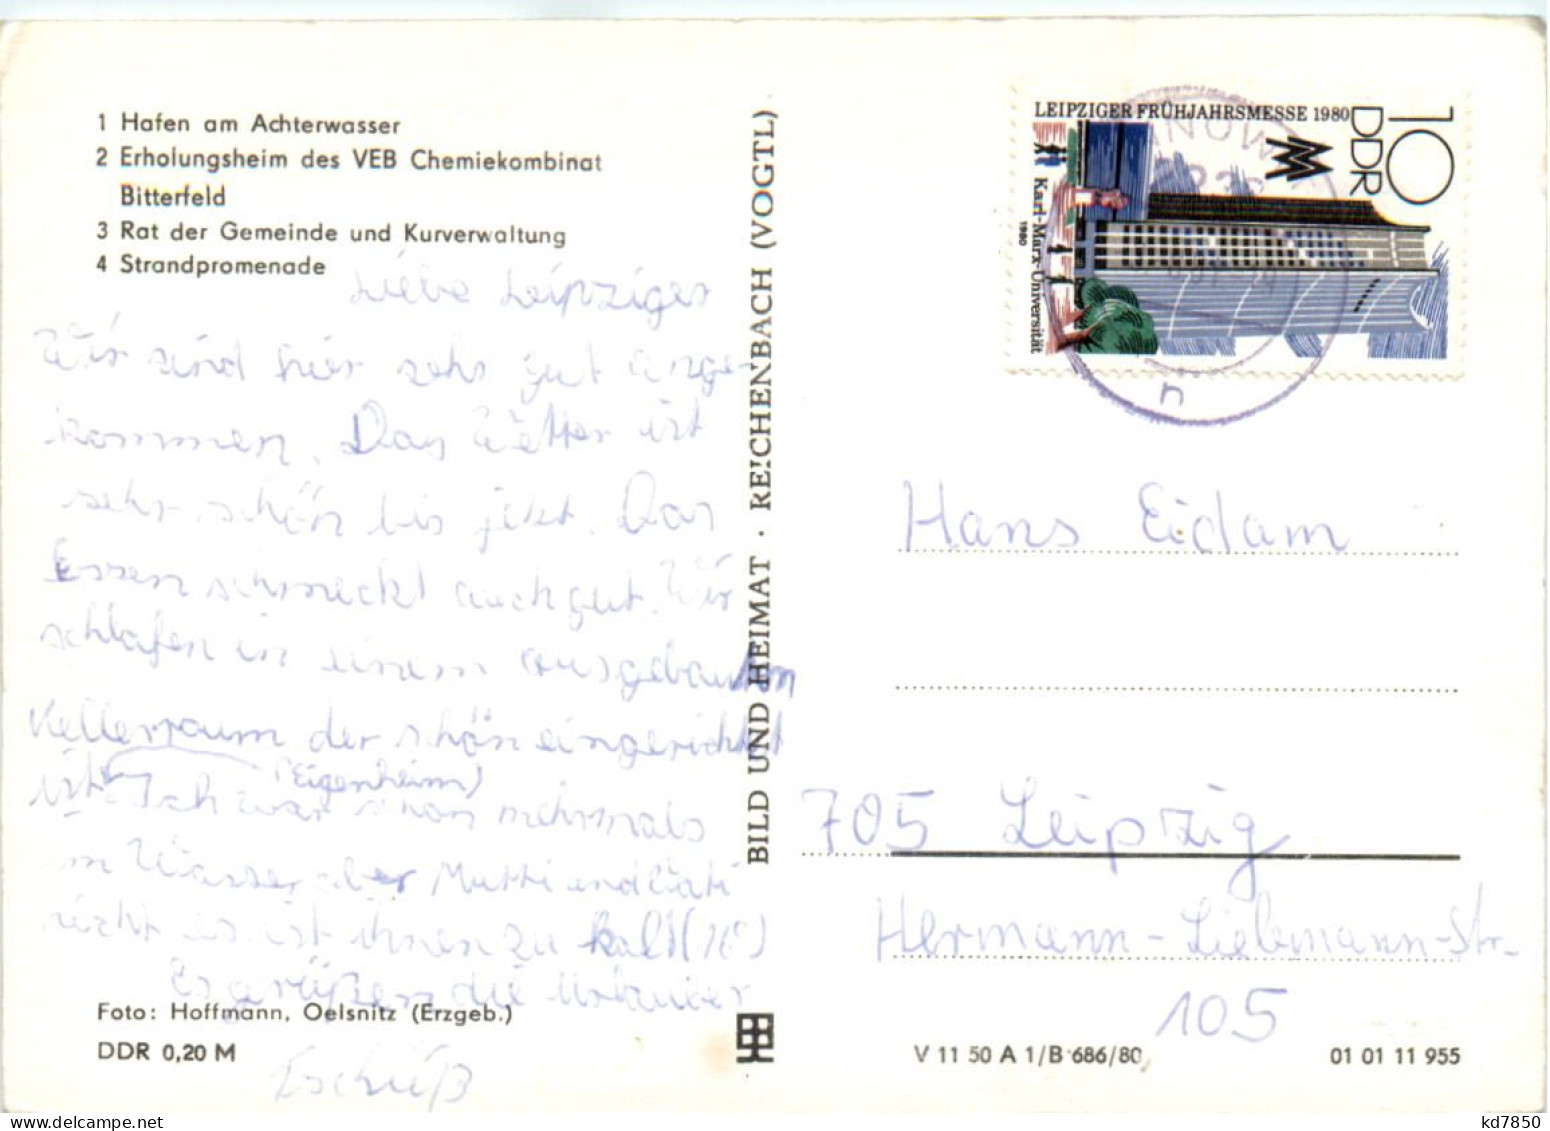 1 Hafen am Achterwasser
2 Erholungsheim des VEB Chemiekombinat
Bitterfeld
3 Rat der Gemeinde und Kurverwaltung
4 Strandpromenade
Liebe Leipziger
Wir sind hier sehr gut ange-
kommen. Das Wetter ist
sehr schön bis jetzt. Das
Essen schmeckt auch gut. Wir
schlafen in einem ausgebauten
Kellerraum der schön eingerichtet
(Eigenheim)
ist. Ich war schon mehrmals
im Wasser aber Mutti und Vati
nicht es ist ihnen zu kalt (16°)
Es grüßen die Urlauber
Tschüß
Foto: Hoffmann, Oelsnitz (Erzgeb.)
DDR 0,20 M
BILD UND HEIMAT · REICHENBACH (VOGTL)
LEIPZIGER FRÜHJAHRSMESSE 1980
DDR
10
Karl-Marx-Universität
1980
n
Hans Eidam
705 Leipzig
Hermann-Liebmann-Str.
105
V 11 50 A 1/B 686/80
01 01 11 955
kd7850